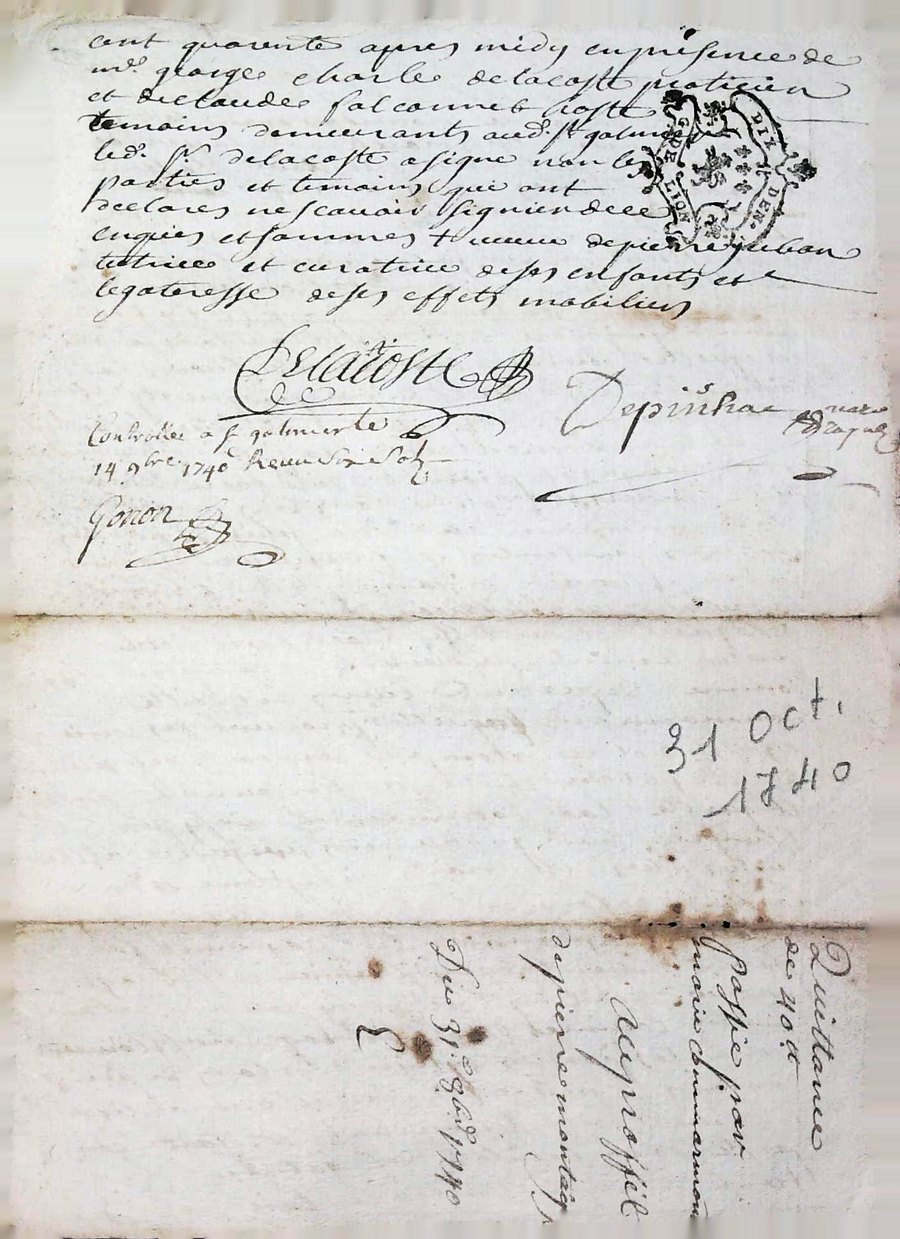 cent quarente apres midy en présence de
mre. george charle delacoste praticien
et de claude falconnet
temoins demeurants aud. st. galmier
led. sr. delacoste a signe non les
parties et temoins qui ont
declares ne scavoir signier de ce
enquis et sommes + veuve de pierre juban
tutrice et curatrice de ses enfants et
legateresse de ses effets mobiliers
GNE. LION
DIX DEN.
Delacoste
Depinhac
Controllee a st galmier le
14 9bre 1740 Receu Six Sols
Gonon
31 Oct.
1740
Quittance
de 40 lt
Passée par
marie
Au proffit
de pierre montag
Du 31e. 8bre. 1740